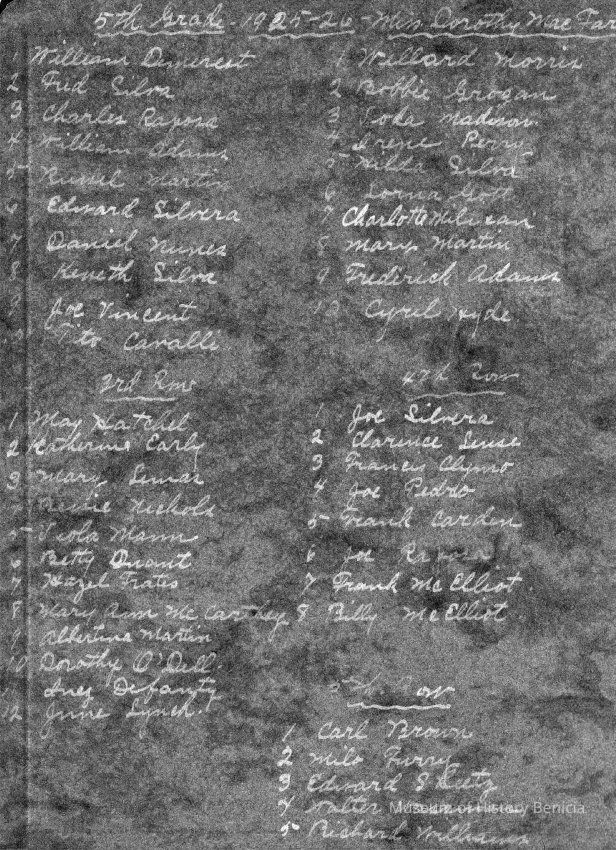 5th Grade - 1925-26 - Miss Dorothy Mac Far
William Demerest
2 Fred Silva
3 Charles Raposa
4 William Adams
5 Martin
6 Edward Silvera
7 Daniel Nunes
8 Keneth Silva
9 Joe Vincent
Tito Cavalli
1 Willard Morris
2 Bobbie Grogan
3 Madison
4 Irene Perry
5 Hilda Silva
6 Lorna Gott
7 Charlotte
8 Mary Martin
9 Fredirick Adams
10 Cyril Hyde
3rd Row
1 May Hatchel
2 Katherine Early
3 Mary
Nichols
5 Viola Mann
6 Betty
7 Hazel Frates
8 Mary Ann Mc Cartney
9 Albertina Martin
10 Dorothy O'Dell
11 Inez
12 June Lynch
4th Row
1 Joe Silvera
2 Clarence
3 Francis Clymo
4 Joe Pedro
5 Frank Carden
6 Joe Raposa
7 Frank Mc Elliot
8 Billy Mc Elliot
5th Row
1 Carl Brown
2 Milo Furry
3 Edward
4 Walter
5 Richard Williams
Museum of History Benicia